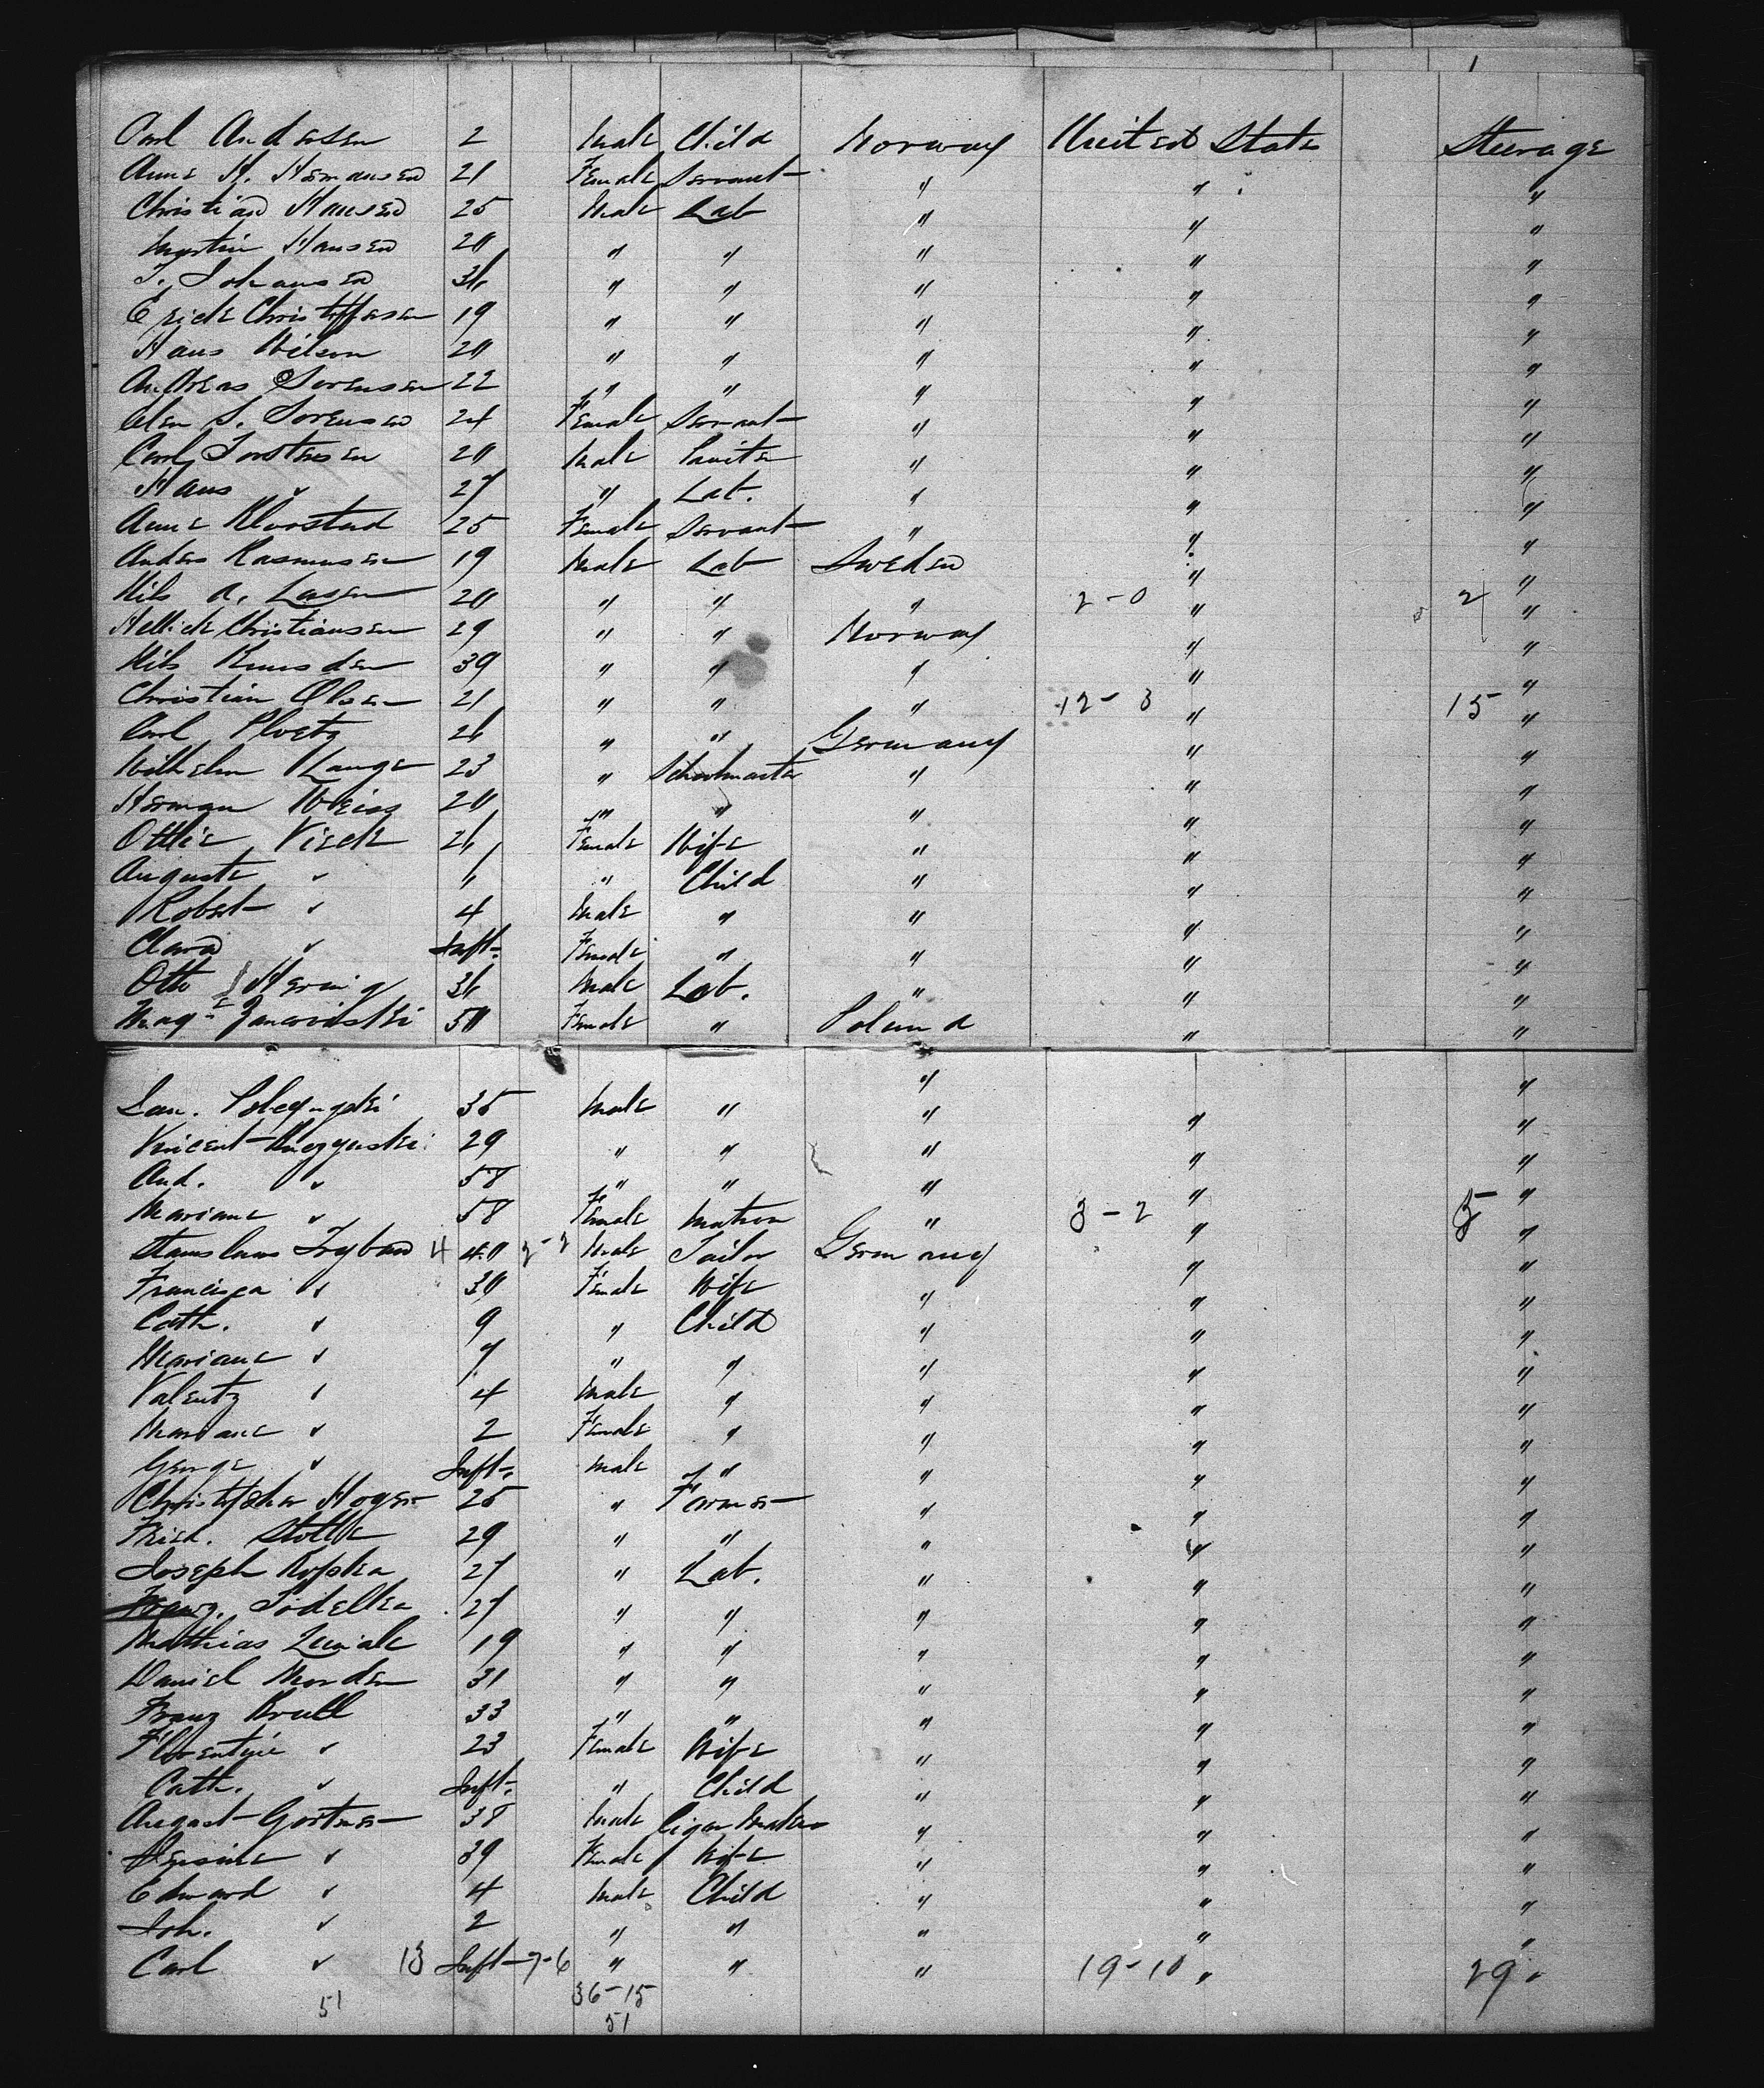 Carl Andersen 2 Male Child Norway United States Steerage
Anne H. Hermansen 21 Female Servant " " "
Christian Hansen 25 Male Lab " " "
Martin Hansen 20 " " " " "
T. Johansen 36 " " " " "
Erick Christoffersen 19 " " " " "
Hans Nilson 20 " " " " "
Andreas Sorensen 22 " " " " "
Olen S. Sorensen 24 Female Servant " " "
Carl Torstensen 20 Male " " "
Hans " 27 " Lab. " " "
Anne 25 Female Servant " " "
Anders Rasmussen 19 Male Lab Sweden " "
Nils A. Lasen 20 " " " 2-0 " 2 "
Hellick Christiansen 29 " " Norway " "
Nils Knusden 39 " " " " "
Christian Olsen 21 " " " 12-3 " 15 "
Carl Ploetz 26 " " Germany " "
Wilhelm Lange 23 " Schoolmaster " " "
Herman Weiss 20 " " " " "
Ottlie Vieck 26 Female Wife " " "
Auguste " 6 " Child " " "
Robert " 4 Male " " " "
Clara " Inft. Female " " " "
Otto Hering 36 Male Lab. " " "
50 Female " Poland " "
Jan. 35 Male " " " "
Vincent 29 " " " " "
And. " 58 " " " " "
Mariane " 58 Female Matron " 3-2 " 5 "
Stanislaus Tryban 4 40 2-2 Male Tailor Germany " "
Francisca " 30 Female Wife " " "
Cath. " 9 " Child " " "
Mariane " 7 " " " " "
Valentz " 4 Male " " " "
Mariane " 2 Female " " " "
George " Inft. Male " " " "
Christopher Hoger 25 " Farmer " " "
Fried. Stolle 29 " " " " "
Joseph 27 " Lab. " " "
Franz. 27 " " " " "
Mathias 19 " " " " "
Daniel Morden 31 " " " " "
Franz Krull 33 " " " " "
Florentine " 23 Female Wife " " "
Cath. " Inft. " Child " " "
August Gortner 38 Male Cigar Maker " " "
" 39 Female Wife " " "
Edward " 4 Male Child " " "
Joh. " 2 " " " " "
Carl " 13 Inft 7-6 " " " 19-10 " 29 "
51 36-15
51